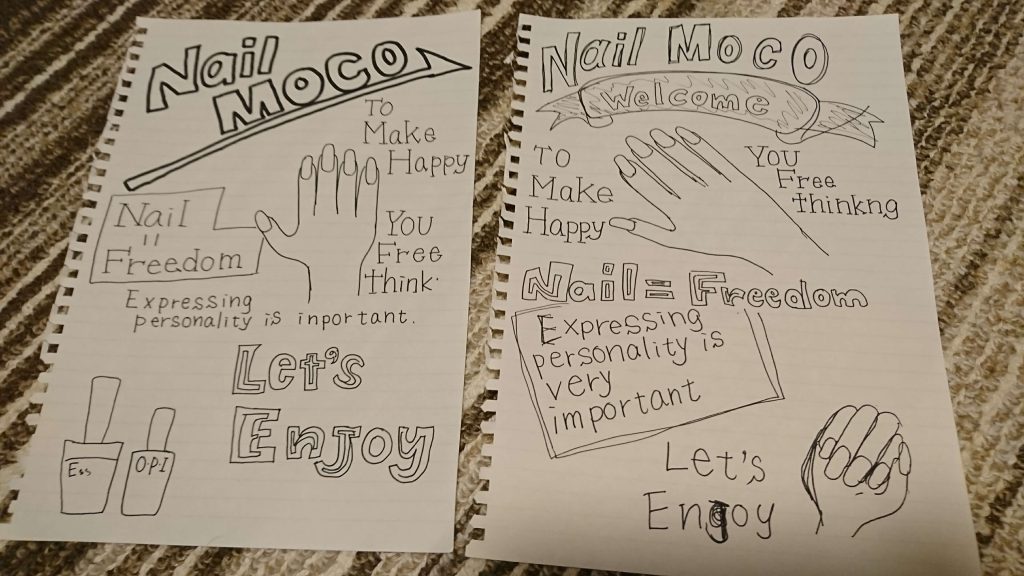 Nail
MOCO
TO
Make
Happy
Nail
=
Freedom
YOU
Free
think.
Expressing
personality is inportant.
Let's
Enjoy
OPI
Nail Moco
Welcome
TO
Make
Happy
You
Free
thinkng
Nail = Freedom
Expressing
personality is
very
important
Let's
Enjoy